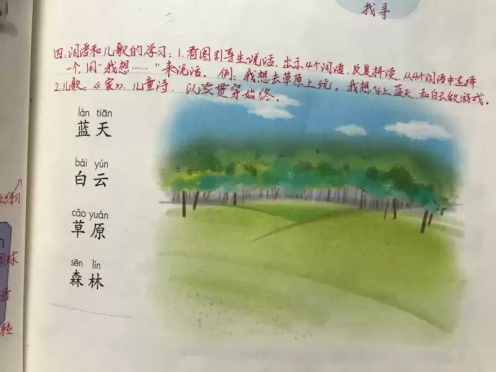 找寻
四.词语和儿歌的学习:1.看图引导生说话,出示4个词语,反复拼读,从4个词语中选择
一个,用“我想……”来说话。例:我想去草原上玩。我想和蓝天、和白云做游戏。
2.儿歌。《家》,儿童诗,以读贯穿始终。
lán tiān
蓝天
bái yún
白云
cǎo yuán
草原
sēn lín
森林